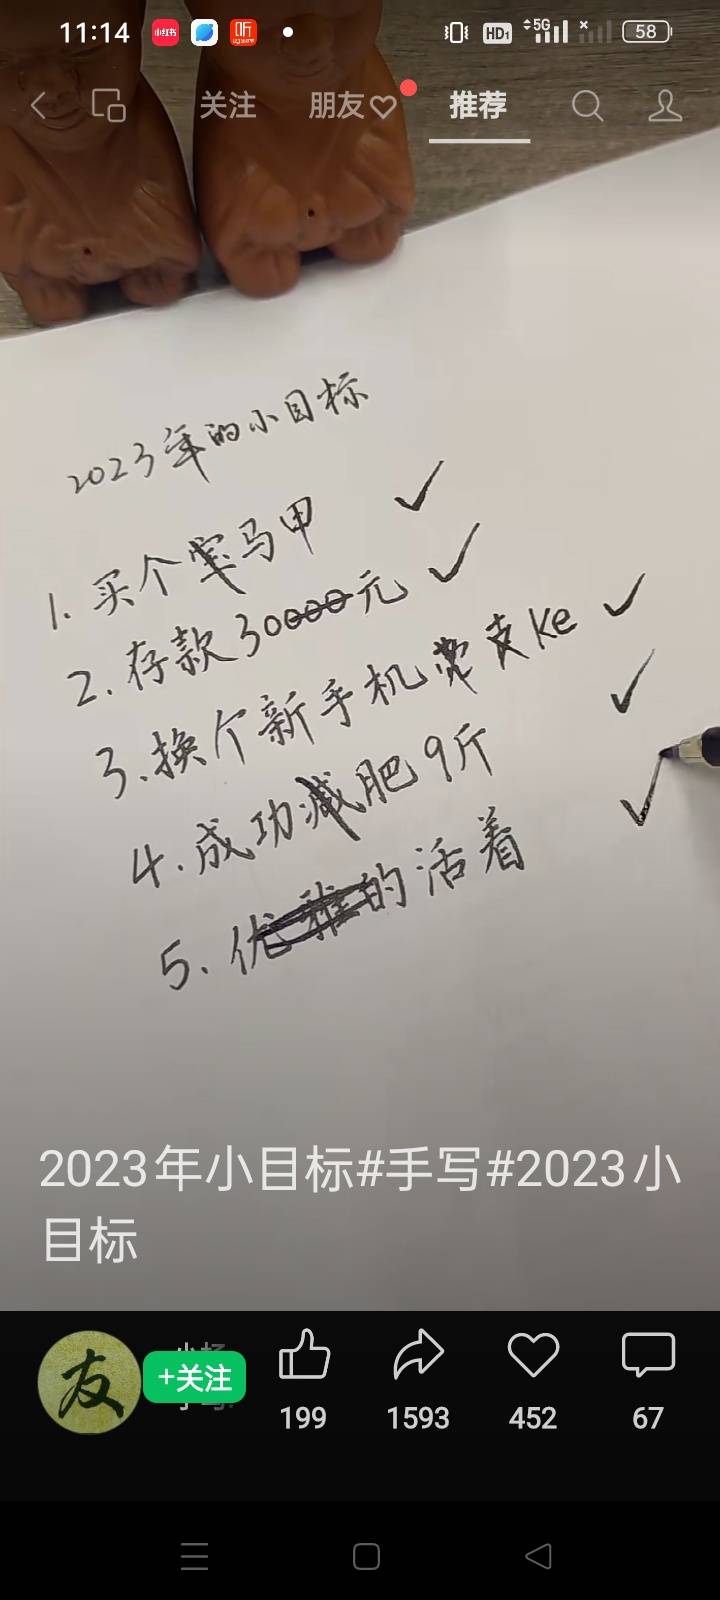 11:14
小红书
听
HD1
5G
58
关注
朋友
推荐
2023年的小目标
1. 买个宝马甲
2. 存款30000元
3. 换个新手机壳支Ke
4. 成功减肥9斤
5. 优雅的活着
2023年小目标#手写#2023小
目标
友
+关注
199
1593
452
67